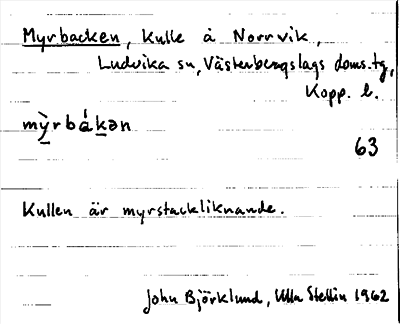 Myrbacken, kulle å Norrvik,
Ludvika sn, Västerbergslags doms.tg,
Kopp. l.
mỳrbákən
63
Kullen är myrstackliknande.
John Björklund, Ulla Stellin 1962